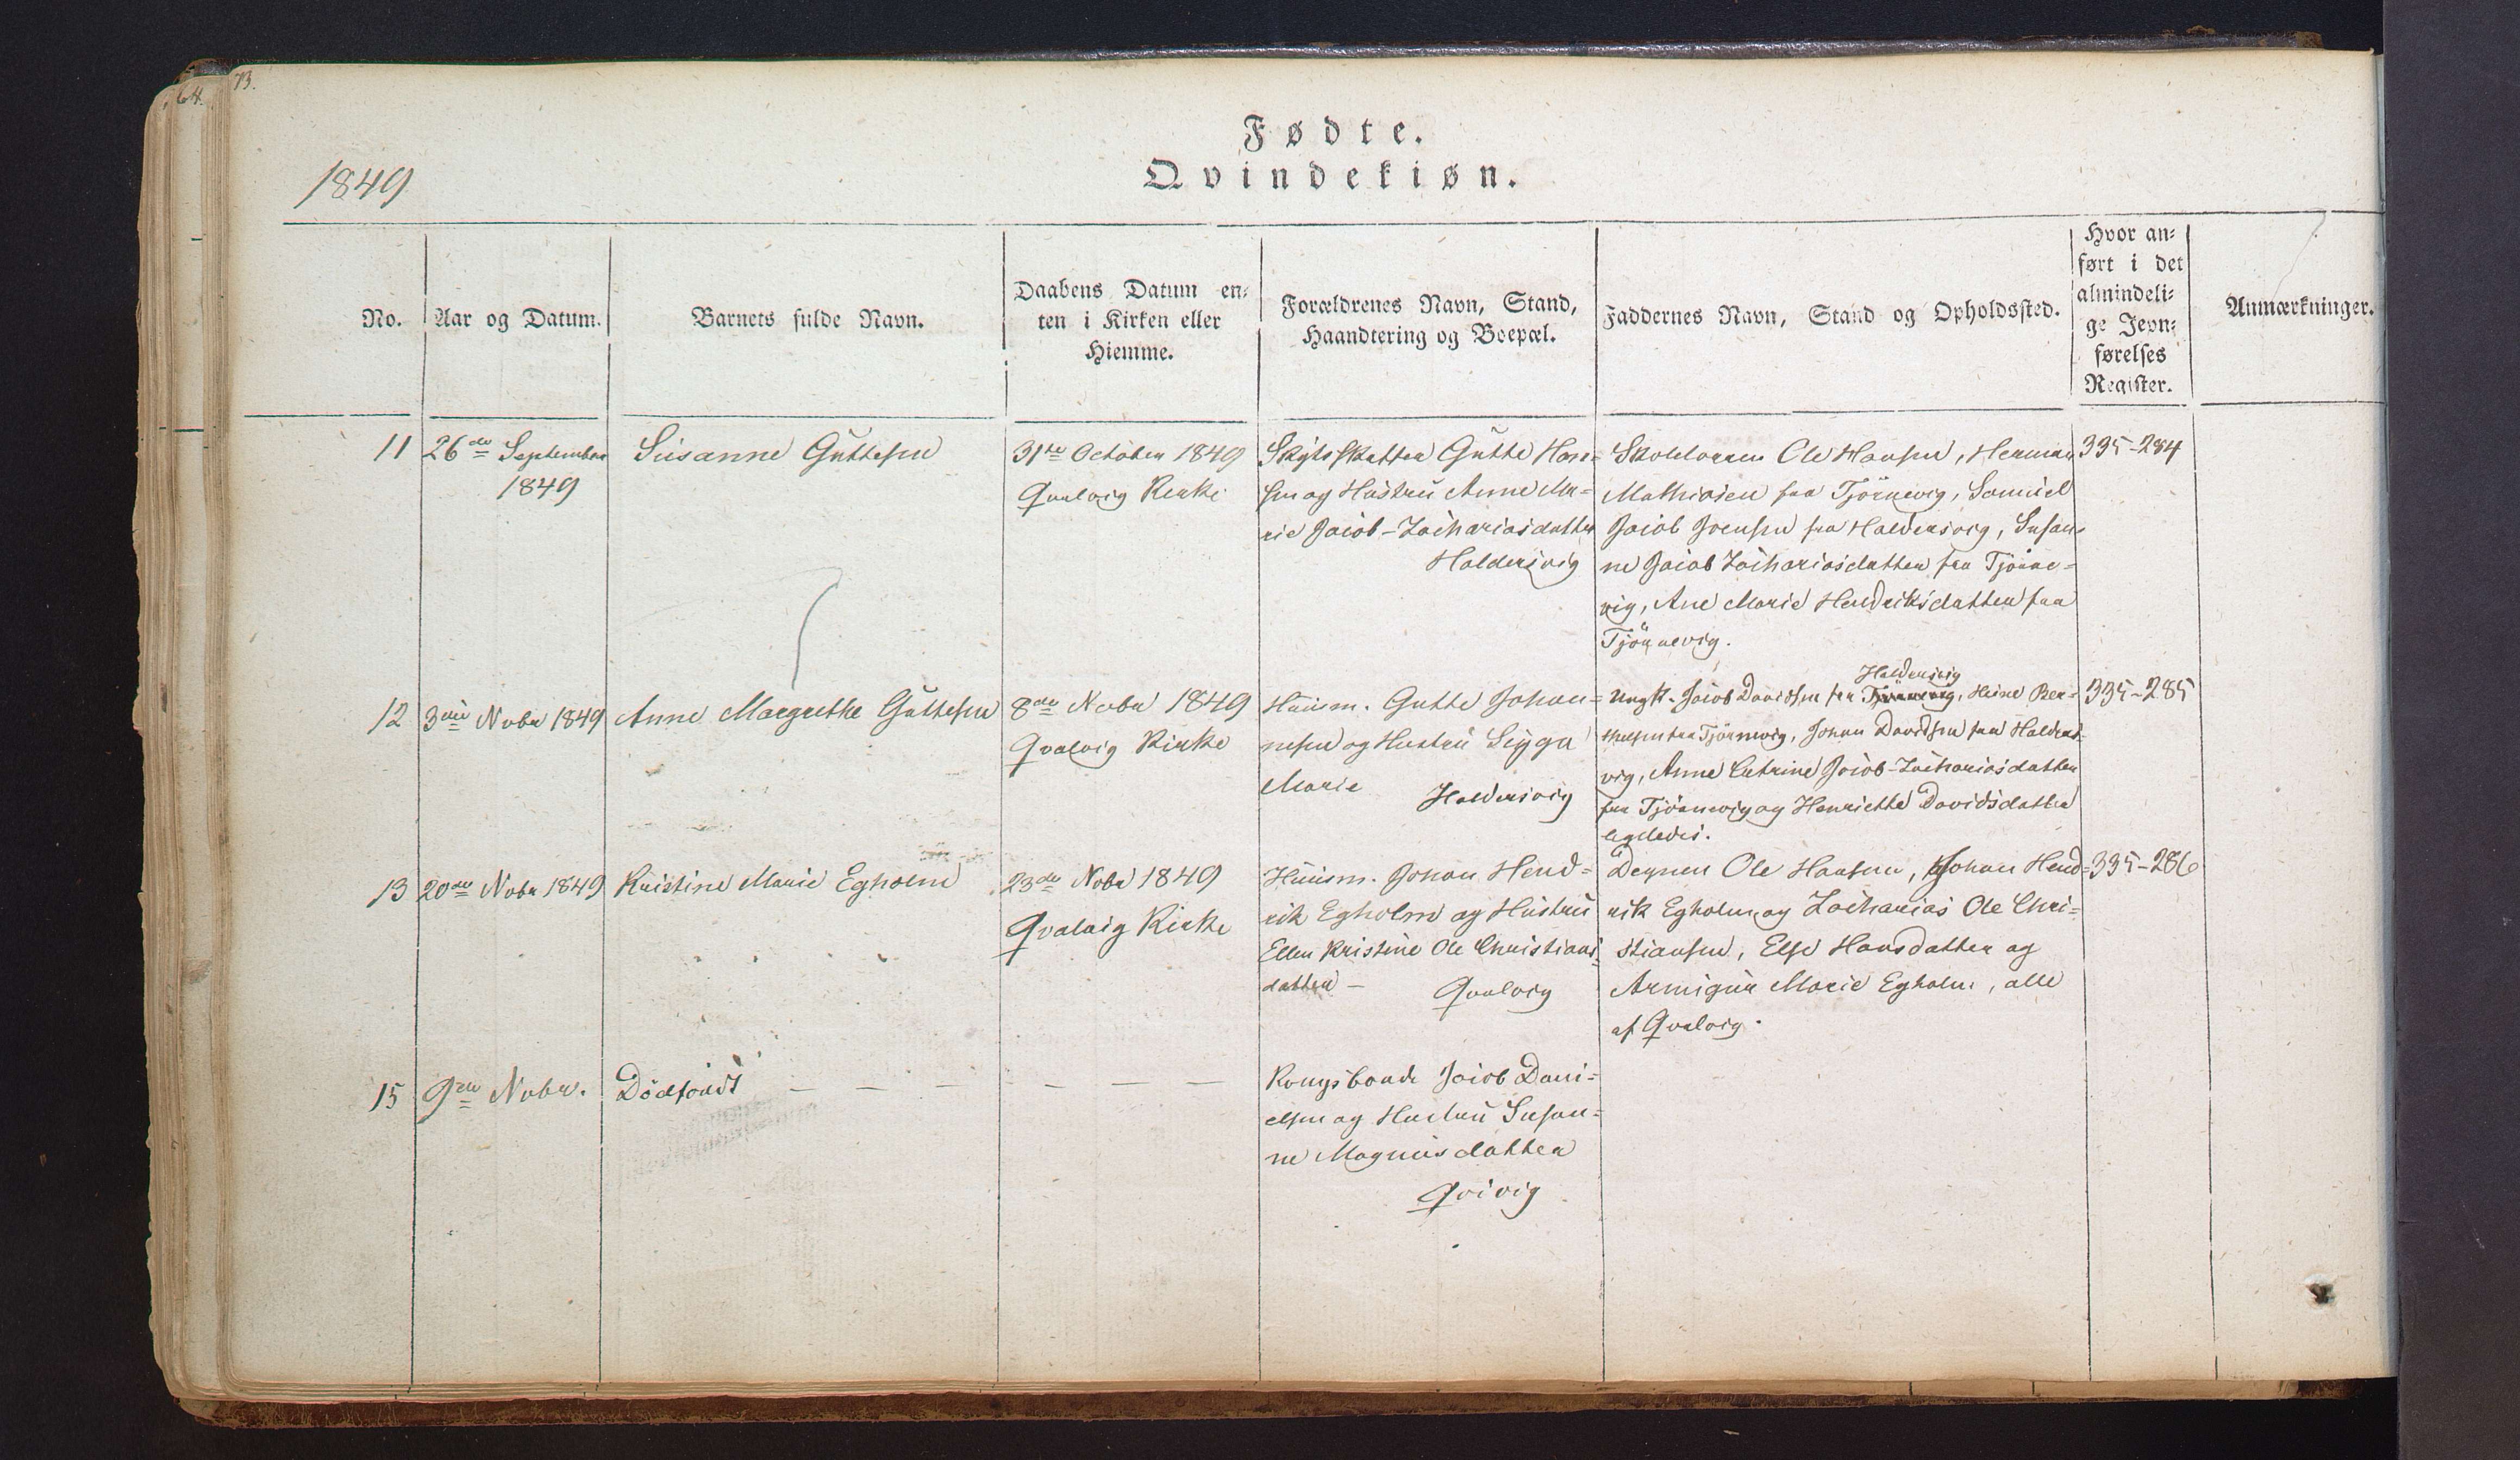 64.
73.
Fødte.
Qvindekiøn.
1849
No.
Aar og Datum.
Barnets fulde Navn.
Daabens Datum en-
ten i Kirken eller
Hiemme.
Forældrenes Navn, Stand,
Haandtering og Boepæl.
Faddernes Navn, Stand og Opholdssted.
Hvor an-
ført i det
almindeli-
ge Jevn-
førelses
Register.
Anmærkninger.
11
26de September
1849
Susanne Guttesen
31te October 1849
Qvalvig Kirke
Skydsskaffer Gutte Han-
sen og Hustru Anne Ma-
rie Jacob-Zachariasdatter
Haldersvig
Skolelærer Ole Hansen, Herman
Mathiasen fra Tjörnevig, Samuel
Jacob Joensen fra Haldersvig, Susan-
ne Jacob Zachariasdatter fra Tjörne-
vig, Ane Marie Hendriksdatter fra
Tjörnevig.
335-284
12
3die Nobr 1849
Anne Margrethe Guttesen
8de Nobr 1849
Qvalvig Kirke
Huusm. Gutte Johan-
nesen og Hustru Sigga
Marie
Haldersvig
Haldersvig
Ungk. Jacob Davidsen fra Tjörnevig, Heine Ber-
thelsen fra Tjörnevig, Johan Davidsen fra Halders-
vig, Anne Catrine Jacob-Zachariasdatter
fra Tjörnevig og Henriette Davidsdatter
ligeledes.
335-285
13
20de Nobr 1849
Kristine Marie Egholm
23de Nobr 1849
Qvalvig Kirke
Huusm. Johan Hend-
rik Egholm og Hustru
Ellen Kristine Ole Christians-
datter -
Qvalvig
Degnen Ole Hansen, Johan Hend-
rik Egholm og Zacharias Ole Chri-
stiansen, Else Hansdatter og
Armigur Marie Egholm, alle
af Qvalvig.
335-286
15
9de Nobr.
Dödfödt - - - - - -
Kongsbonde Jacob Dani-
elsen og Hustru Susan-
ne Magnusdatter
Qvivig